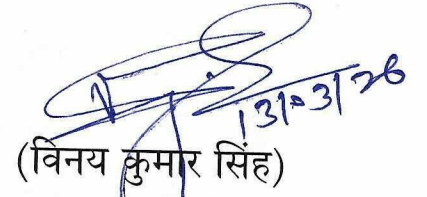 13/03/26
(विनय कुमार सिंह)